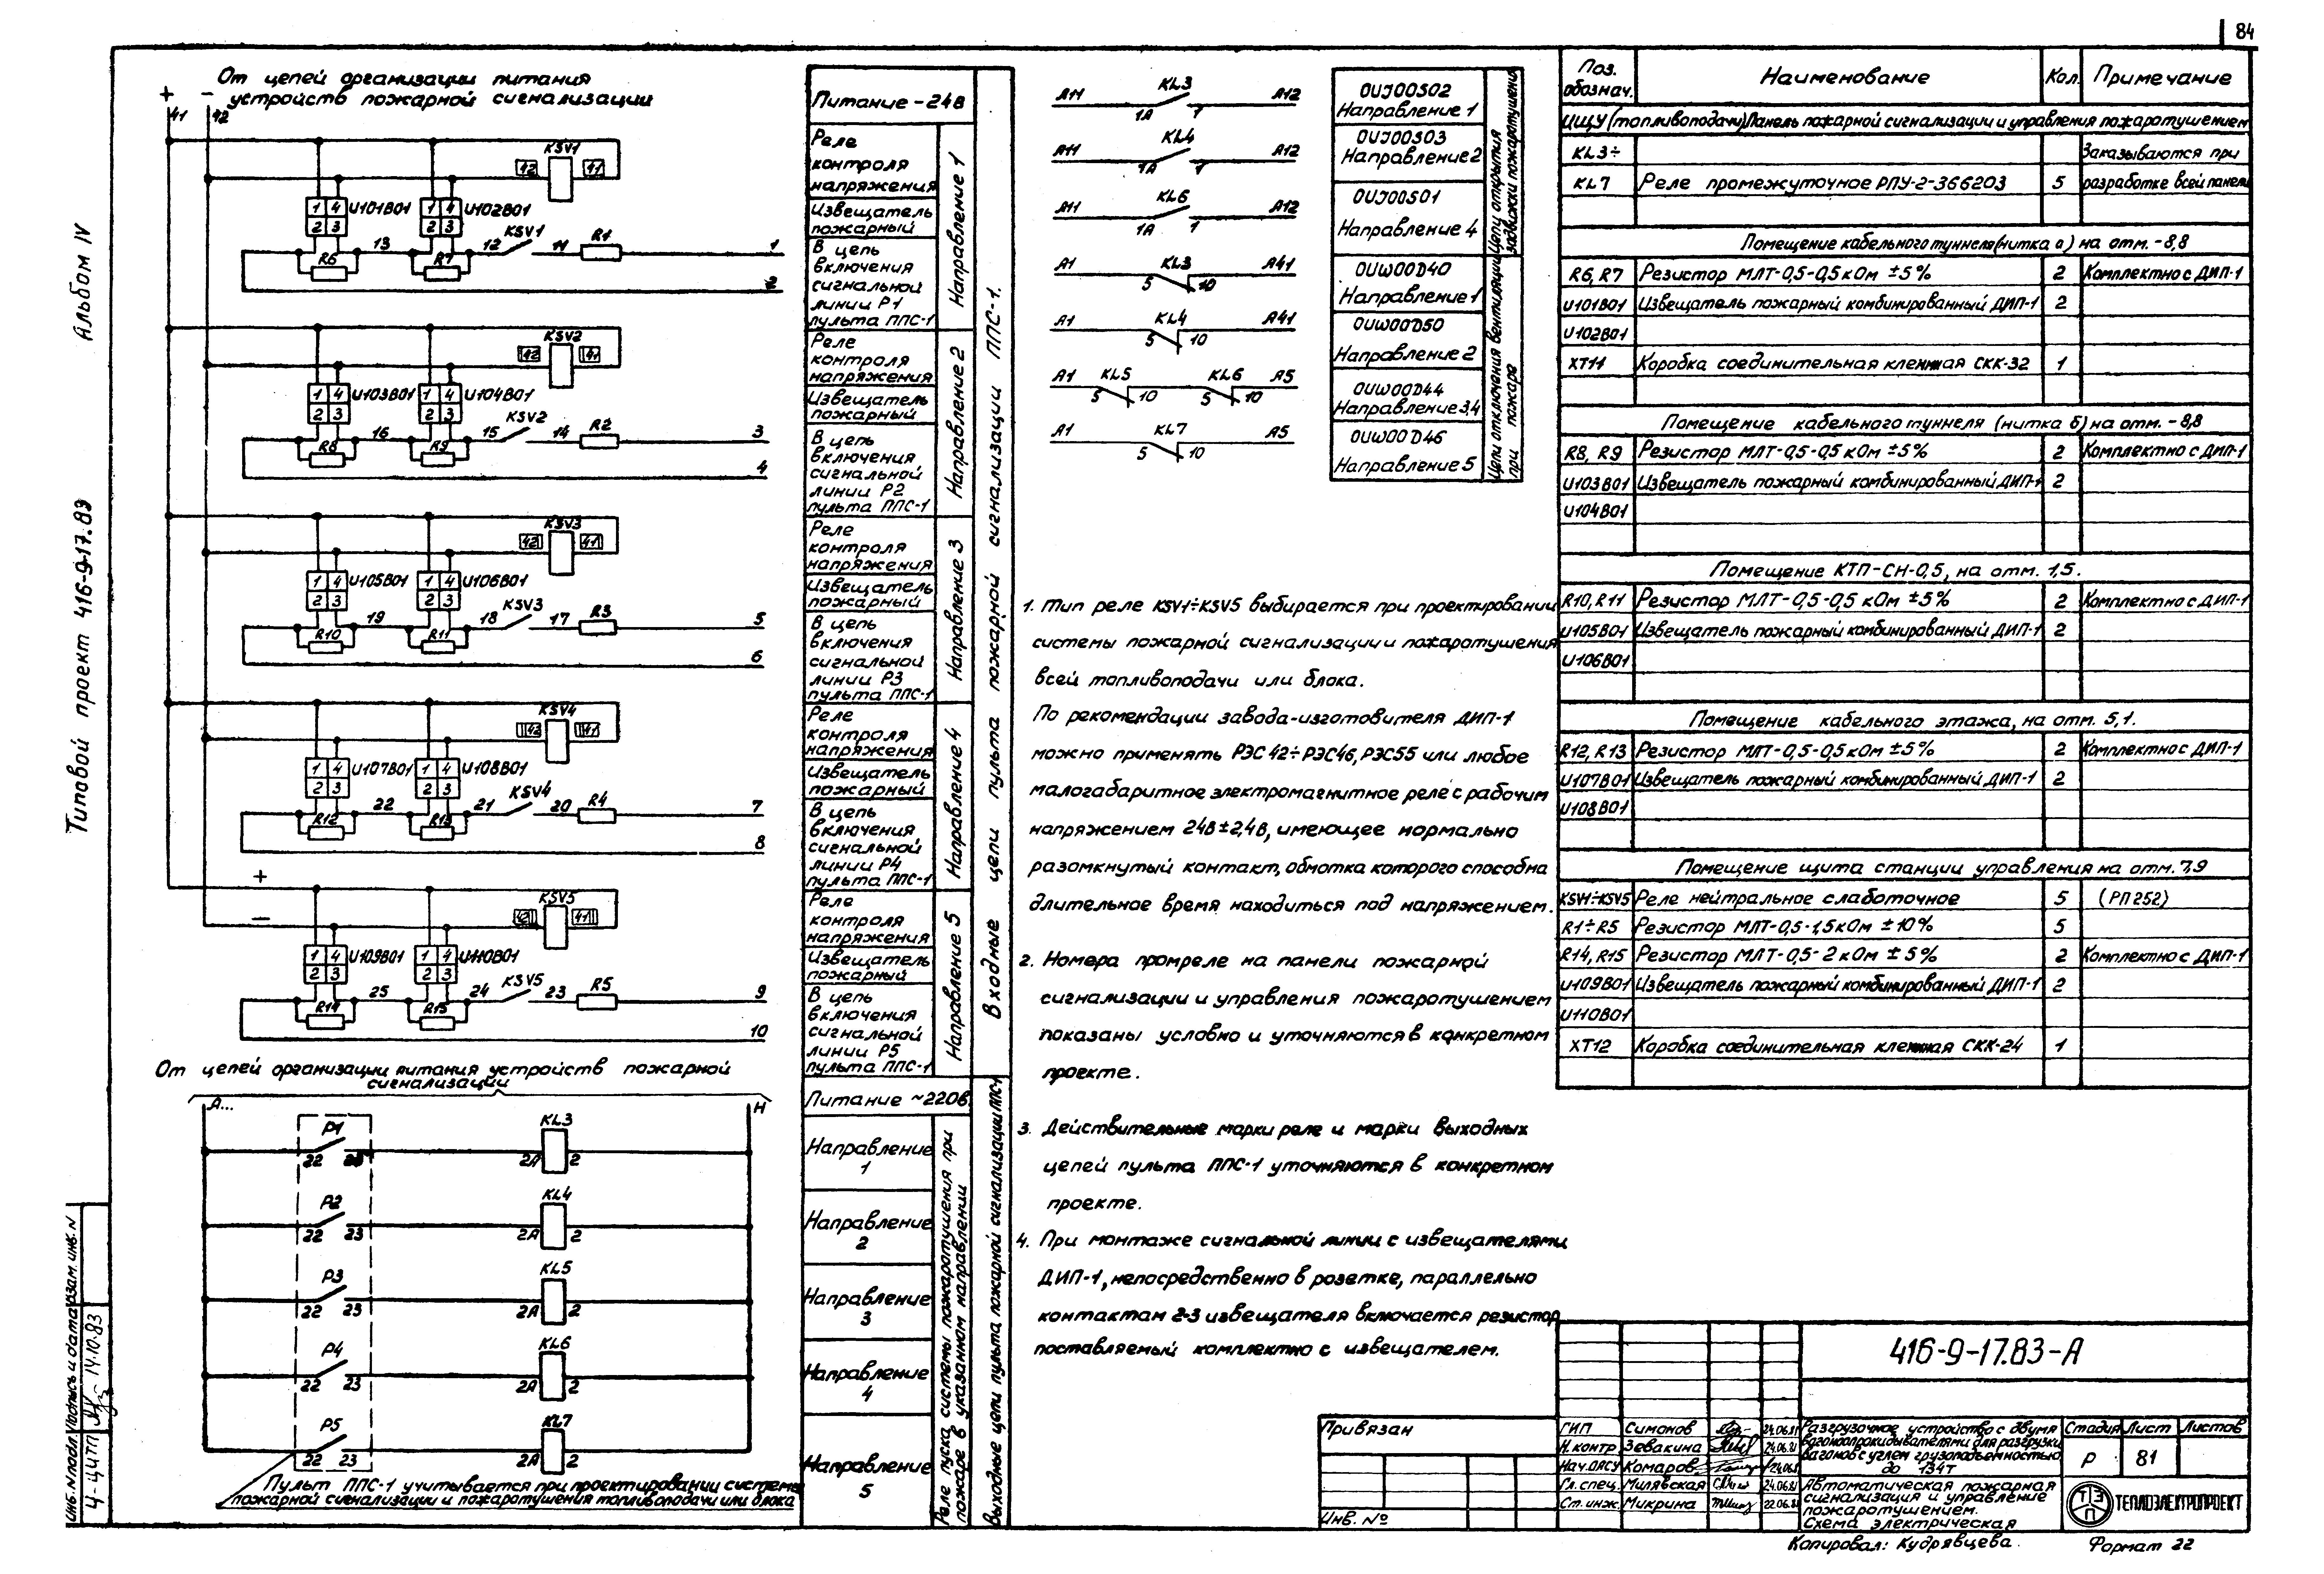 84
Альбом IV
Типовой проект 416-9-17.83
От цепей организации питания
устройств пожарной сигнализации
+ −
41 42
KSV1
42 41
1 4 U101В01 1 4 U102В01
2 3 2 3
13 12 KSV1 11 R1 1
R6 R7
2
KSV2
42 41
1 4 U103В01 1 4 U104В01
2 3 2 3
16 15 KSV2 14 R2 3
R8 R9
4
KSV3
42 41
1 4 U105В01 1 4 U106В01
2 3 2 3
19 18 KSV3 17 R3 5
R10 R11
6
KSV4
42 41
1 4 U107В01 1 4 U108В01
2 3 2 3
22 21 KSV4 20 R4 7
R12 R13
8
+
−
KSV5
42 41
1 4 U109В01 1 4 U110В01
2 3 2 3
25 24 KSV5 23 R5 9
R14 R15
10
От цепей организации питания устройств пожарной
сигнализации
А... Н
Р1 KL3
22 23 2А 2
Р2 KL4
22 23 2А 2
Р3 KL5
22 23 2А 2
Р4 KL6
22 23 2А 2
Р5 KL7
22 23 2А 2
Пульт ППС-1 учитывается при проектировании системы
пожарной сигнализации и пожаротушения топливоподачи или блока
Питание -24В
Реле
контроля
напряжения
Извещатель
пожарный
В цепь
включения
сигнальной
линии Р1
пульта ППС-1
Направление 1
Реле
контроля
напряжения
Извещатель
пожарный
В цепь
включения
сигнальной
линии Р2
пульта ППС-1
Направление 2
Реле
контроля
напряжения
Извещатель
пожарный
В цепь
включения
сигнальной
линии Р3
пульта ППС-1
Направление 3
Реле
контроля
напряжения
Извещатель
пожарный
В цепь
включения
сигнальной
линии Р4
пульта ППС-1
Направление 4
Реле
контроля
напряжения
Извещатель
пожарный
В цепь
включения
сигнальной
линии Р5
пульта ППС-1
Направление 5
Входные цепи пульта пожарной сигнализации ППС-1.
Питание ~220в
Направление
1
Направление
2
Направление
3
Направление
4
Направление
5
Реле пуска системы пожаротушения при
пожаре в указанном направлении
Выходные цепи пульта пожарной сигнализации ППС-1
А11 KL3 А12
1А 7
А11 KL4 А12
1А 7
А11 KL6 А12
1А 7
А1 KL3 А41
5 10
А1 KL4 А41
5 10
А1 KL5 KL6 А5
5 10 5 10
А1 KL7 А5
5 10
0UJ00S02
Направление 1
0UJ00S03
Направление 2
0UJ00S01
Направление 4
0UW00D40
Направление 1
0UW00D50
Направление 2
0UW00D44
Направление 3,4
0UW00D46
Направление 5
Цепи открытия
задвижки пожаротушения
Цепи отключения вентиляции
при пожаре
1. Тип реле KSV1÷KSV5 выбирается при проектировании
системы пожарной сигнализации и пожаротушения
всей топливоподачи или блока.
По рекомендации завода-изготовителя ДИП-1
можно применять РЭС 42÷РЭС46, РЭС55 или любое
малогабаритное электромагнитное реле с рабочим
напряжением 24в±2,4в, имеющее нормально
разомкнутый контакт, обмотка которого способна
длительное время находиться под напряжением.
2. Номера промреле на панели пожарной
сигнализации и управления пожаротушением
показаны условно и уточняются в конкретном
проекте.
3. Действительные марки реле и марки выходных
цепей пульта ППС-1 уточняются в конкретном
проекте.
4. При монтаже сигнальной линии с извещателями
ДИП-1, непосредственно в розетке, параллельно
контактам 2-3 извещателя включается резистор
поставляемый комплектно с извещателем.
Поз. обознач. Наименование Кол. Примечание
ЦЩУ (топливоподачи) Панель пожарной сигнализации и управления пожаротушением
KL3÷ Заказываются при
KL7 Реле промежуточное РПУ-2-366203 5 разработке всей панели
Помещение кабельного туннеля (нитка а) на отм. -8,8
R6, R7 Резистор МЛТ-0,5-0,5 кОм ±5% 2 Комплектно с ДИП-1
U101В01 Извещатель пожарный комбинированный ДИП-1 2
U102В01
ХТ11 Коробка соединительная клеммная СКК-32 1
Помещение кабельного туннеля (нитка б) на отм. -8,8
R8, R9 Резистор МЛТ-0,5-0,5 кОм ±5% 2 Комплектно с ДИП-1
U103В01 Извещатель пожарный комбинированный ДИП-1 2
U104В01
Помещение КТП-СН-0,5, на отм. 1,5.
R10, R11 Резистор МЛТ-0,5-0,5 кОм ±5% 2 Комплектно с ДИП-1
U105В01 Извещатель пожарный комбинированный ДИП-1 2
U106В01
Помещение кабельного этажа, на отм. 5,1.
R12, R13 Резистор МЛТ-0,5-0,5 кОм ±5% 2 Комплектно с ДИП-1
U107В01 Извещатель пожарный комбинированный ДИП-1 2
U108В01
Помещение щита станции управления на отм. 7,9
KSV1÷KSV5 Реле нейтральное слаботочное 5 (РП252)
R1÷R5 Резистор МЛТ-0,5-1,5 кОм ±10% 5
R14, R15 Резистор МЛТ-0,5-2 кОм ±5% 2 Комплектно с ДИП-1
U109В01 Извещатель пожарный комбинированный ДИП-1 2
U110В01
ХТ12 Коробка соединительная клеммная СКК-24 1
416-9-17.83-А
Привязан
Инв. №
ГИП Симонов 24.06.81
Н.контр Зевакина 24.06.81
Нач.ОАСУ Комаров 24.06.81
Гл. спец. Милявская 24.06.81
Ст. инж. Микрина 22.06.81
Разгрузочное устройство с двумя
вагоноопрокидывателями для разгрузки
вагонов с углем грузоподъемностью
до 134т
Стадия Лист Листов
Р 81
Автоматическая пожарная
сигнализация и управление
пожаротушением.
Схема электрическая
ТЭП ТЕПЛОЭЛЕКТРОПРОЕКТ
Копировал: Кудрявцева Формат 22
Инв. N подл. Подпись и дата Взам. инв. N
Ц-ЦИТП 14.10.83